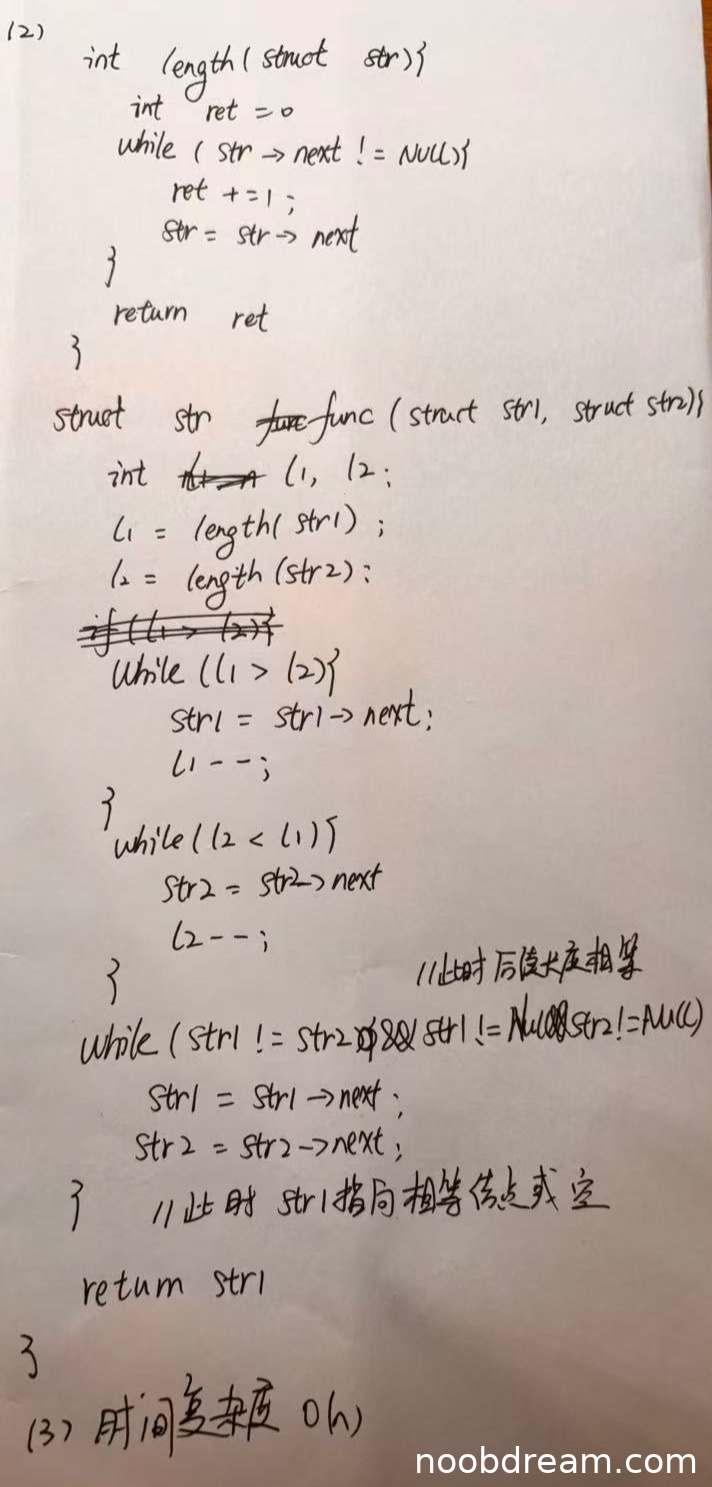 (2)
int length(struct str){
int ret = 0
while (str→next != NULL){
ret +=1;
str = str→next
}
return ret
}
struct str func(struct str1, struct str2){
int l1, l2;
l1 = length(str1);
l2 = length(str2):
if(l1 > l2){
while(l1 > l2){
str1 = str1→next;
l1--;
}
while(l2 < l1){
str2 = str2→next
l2--;
}
//此时后续长度相等
while(str1 != str2 && str1 != NULL && str2 != NULL)
str1 = str1→next;
str2 = str2→next;
} //此时 str1指向相等结点或空
return str1
}
(3) 时间复杂度 O(n)
noobdream.com